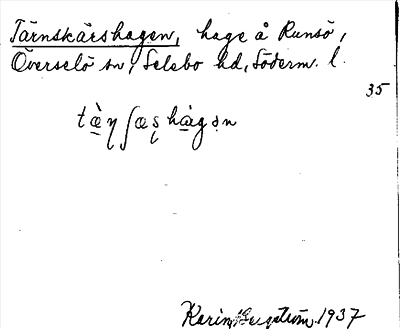 Tärnskärshagen, hage å Runsö,
Överselö sn, Selebo hd, Söderm. l.
35
tæ̀ŋʃæʂhàgən
Karin Bergström 1937